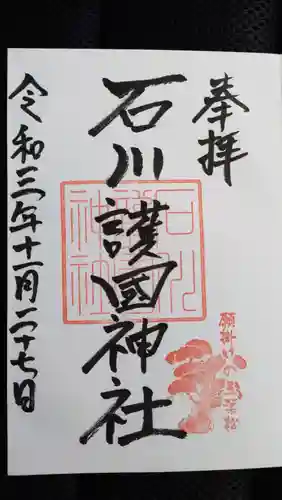 奉拝
石川護國神社
石川護國神社
願掛けの
令和三年十一月二十七日